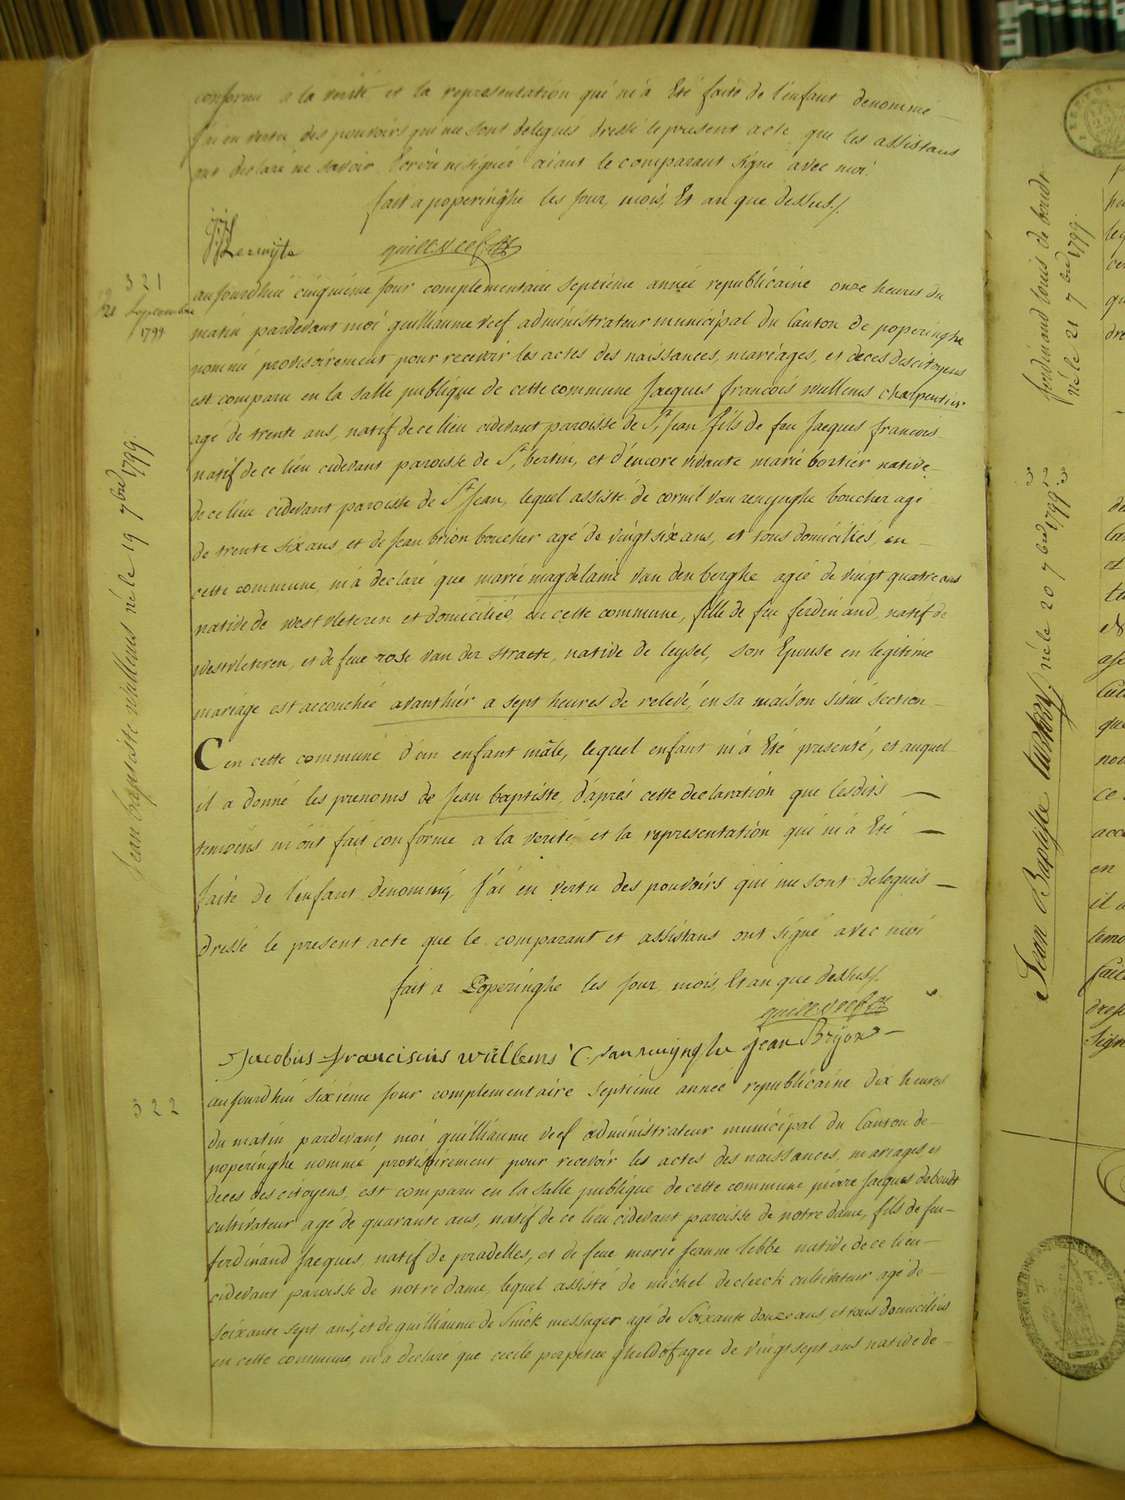 conforme a la verité et la representation qui m'a Eté faite de l'enfant denommé
j'ai en vertu des pouvoirs qui me sont delegués dressé le present acte que les assistans
ont declaré ne savoir Ecrire ni signer aiant le comparant signé avec moi
fait a poperinghe les jour, mois, Et an que dessus
321
21 Septembre
1799
Jean baptiste wullems né le 19 7bre 1799
aujourdhui cinquiéme jour complementaire septiéme année republicaine onze heures du
matin pardevant moi guilliaume veef administrateur municipal du Canton de poperinghe
nommé provisoirement pour recevoir les actes des naissances, mariages, et deces des citoyens
est comparu en la salle publique de cette commune Jacques francois wullems charpentier
agé de trente ans, natif de ce lieu cidevant paroisse de St Jean fils de feu Jacques francois
natif de ce lieu cidevant paroisse de St bertin, et d'encore vivante marie bortier native
de ce lieu cidevant paroisse de St Jean, lequel assisté de cornil van renynghe boucher agé
de trente six ans, et de Jean brion boucher agé de vingt six ans, et tous domiciliés, en
cette commune, m'a declaré que marie magdelaine van den berghe agée de vingt quatre ans
native de westvleteren et domiciliée en cette commune, fille de feu ferdinand, natif de
westvleteren, et de feue rose van der straete, native de leysel, son Epouse en legitime
mariage est accouchée avanthier a sept heures de relevé, en sa maison situé section
C en cette commune d'un enfant mâle, lequel enfant m'a Eté presenté, et auquel
il a donné les prenoms de Jean baptiste, d'après cette declaration que lesdits
temoins m'ont fait conforme a la verité et la representation qui m'a Eté
faite de l'enfant denommé, J'ai en vertu des pouvoirs qui me sont delegués
dressé le present acte que le comparant et assistans ont signé avec moi
fait a Poperinghe les jour, mois, Et an que dessus
Jacobus Franciscus wullems C van renynghe Jean Brijon
322
aujourdhui sixiéme jour complementaire septiéme année republicaine dix heures
du matin pardevant moi guilliaume veef administrateur municipal du Canton de
poperinghe nommé provisoirement pour recevoir les actes des naissances, mariages et
deces des citoyens, est comparu en la salle publique de cette commune pierre Jacques deboudt
cultivateur agé de quarante ans, natif de ce lieu cidevant paroisse de notre dame, fils de feu
ferdinand Jacques, natif de pradelles, et de feue marie Jeanne lebbe native de ce lieu
cidevant paroisse de notre dame, lequel assisté de michel declerck cultivateur agé de
soixante sept ans, et de guilliaume de messager agé de soixante douze ans, et tous domiciliés
en cette commune, m'a declaré que cecile agée de vingt sept ans native de
ferdinand louis de boudt
né le 21 7bre 1799
323
Jean Baptiste
né le 20 7bre 1799